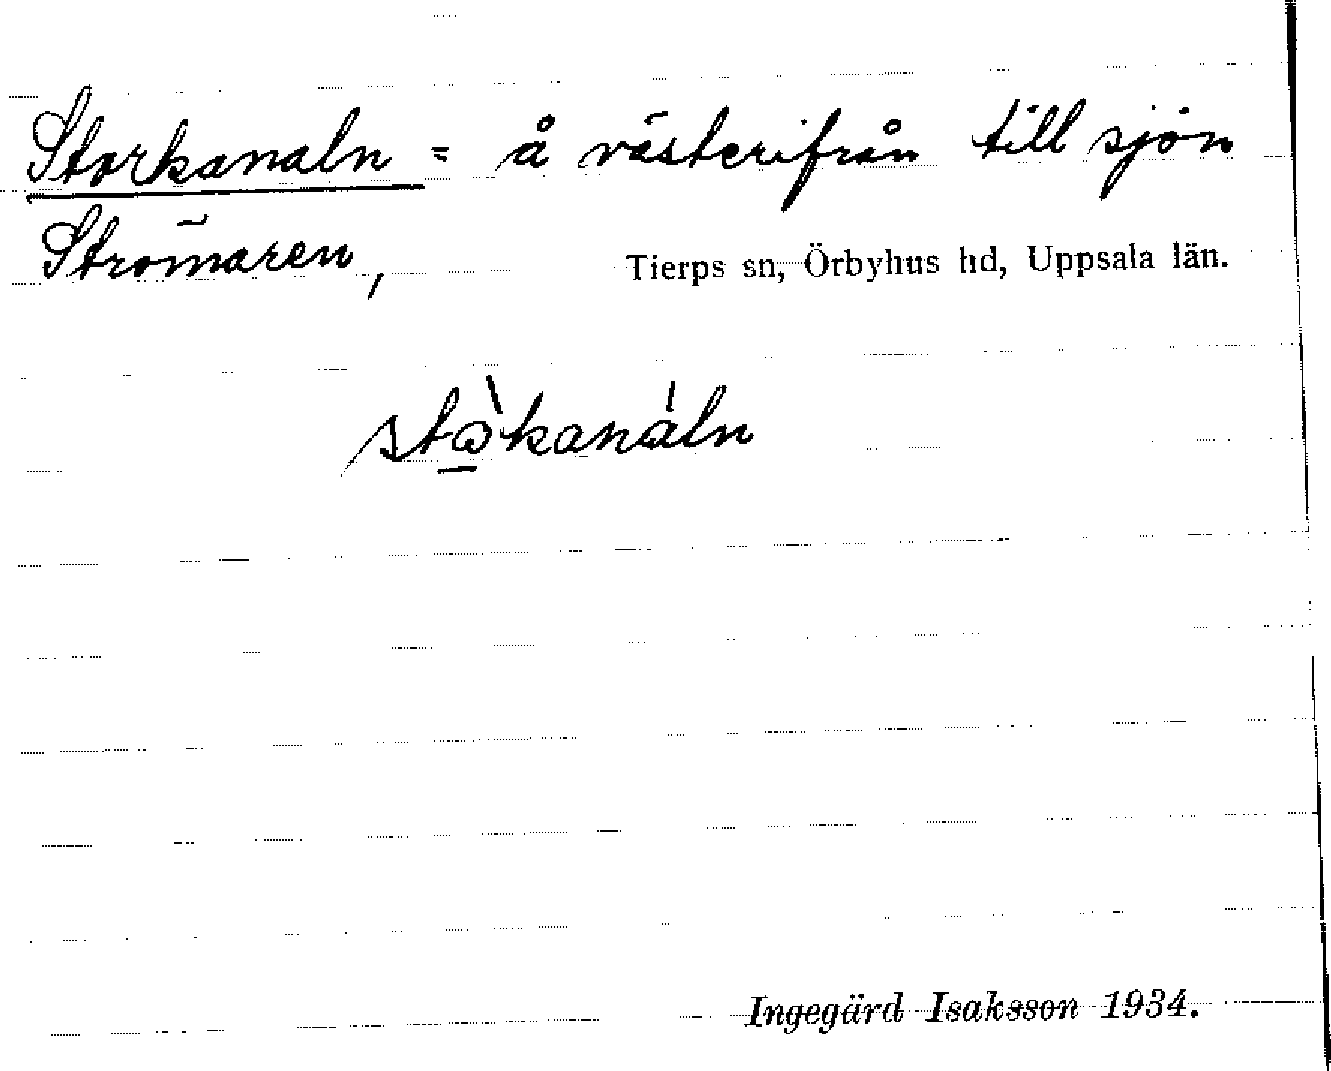 Storkanaln = å västerifrån till sjön
Strömaren, Tierps sn, Örbyhus hd, Uppsala län.
sto̠̔kaná̍ln
Ingegärd Isaksson 1934.